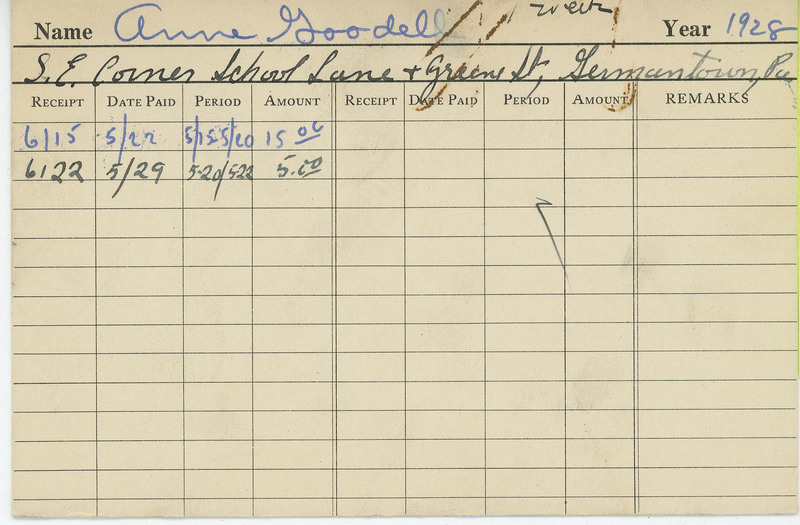 Name Anne Goodell 1 week Year 1928
S. E. Corner School Lane + Greene St, Germantown, Pa
RECEIPT DATE PAID PERIOD AMOUNT RECEIPT DATE PAID PERIOD AMOUNT REMARKS
6115 5/22 5/15 5/20 15 00
6122 5/29 5-20/5-22 5.00